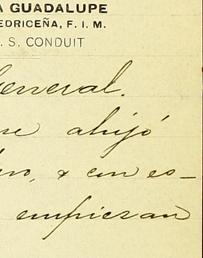 A GUADALUPE
EDRICEÑA, F. I. M.
. S. CONDUIT
General.
ahijó
con es-
empiezan